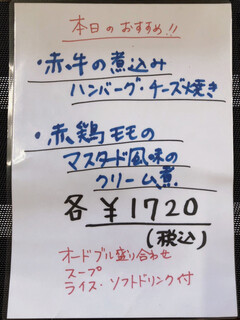 本日のおすすめ!!
・赤牛の煮込み
ハンバーグ・チーズ焼き
・赤鶏モモの
マスタード風味の
クリーム煮
各 ¥1720
(税込)
オードブル盛り合わせ
スープ
ライス・ソフトドリンク付